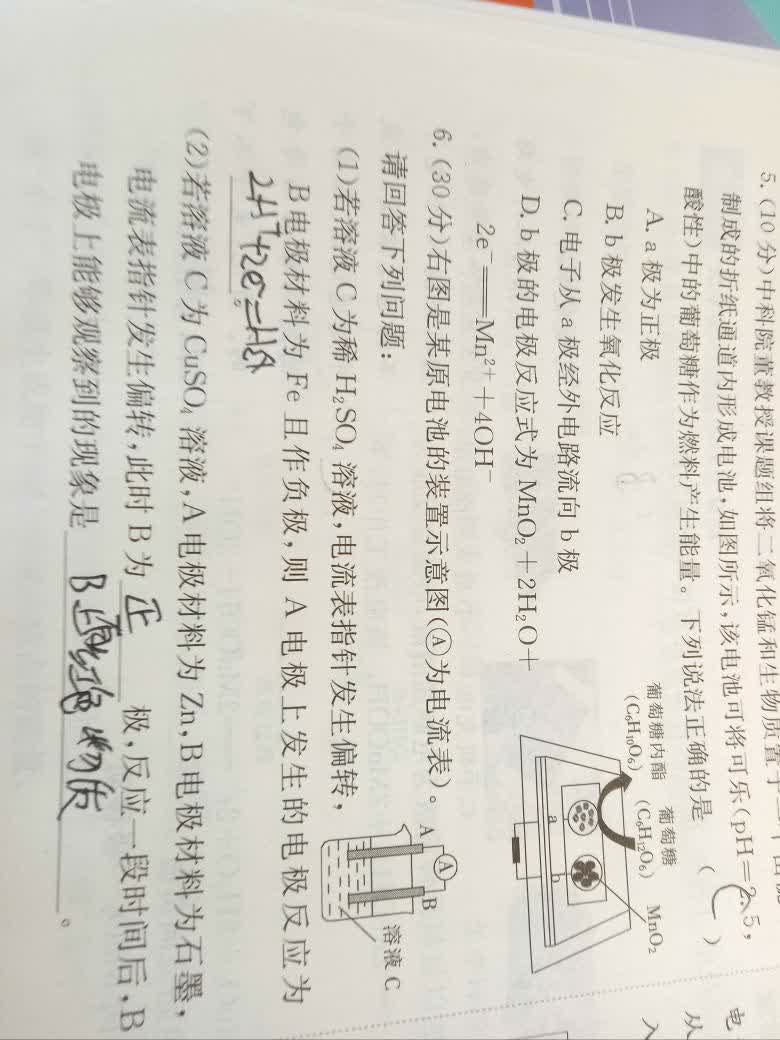 5. (10 分)中科院董教授课题组将二氧化锰和生物质置于
制成的折纸通道内形成电池,如图所示,该电池可将可乐(pH=2.5,
酸性)中的葡萄糖作为燃料产生能量。下列说法正确的是 ( C )
A. a 极为正极
B. b 极发生氧化反应
C. 电子从 a 极经外电路流向 b 极
D. b 极的电极反应式为 MnO₂+2H₂O+
2e⁻══Mn²⁺+4OH⁻
葡萄糖内酯
(C₆H₁₀O₆)
葡萄糖
(C₆H₁₂O₆)
MnO₂
a
b
6. (30 分)右图是某原电池的装置示意图(Ⓐ为电流表)。
请回答下列问题:
(1)若溶液 C 为稀 H₂SO₄ 溶液,电流表指针发生偏转,
B 电极材料为 Fe 且作负极,则 A 电极上发生的电极反应为
2H⁺+2e⁻=H₂↑。
A
A
B
溶液 C
(2)若溶液 C 为 CuSO₄ 溶液,A 电极材料为 Zn,B 电极材料为石墨,
电流表指针发生偏转,此时 B 为 正 极,反应一段时间后,B
电极上能够观察到的现象是 B上 红色物质 。
电
从
入